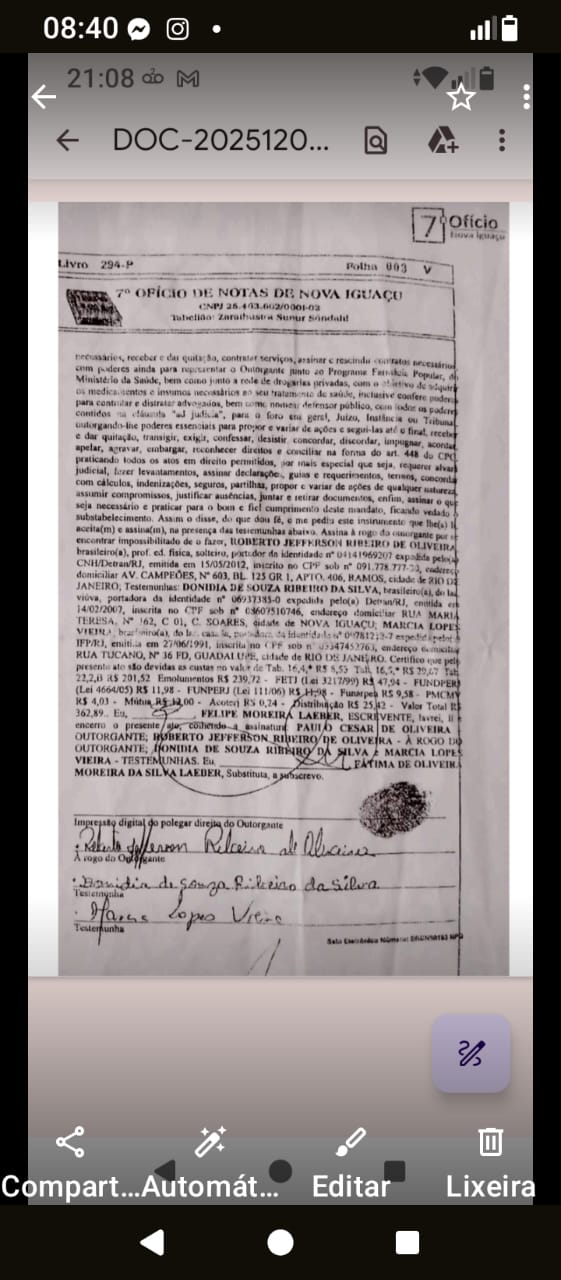 08:40
21:08
DOC-2025120...
7º Ofício
Nova Iguaçu
Livro 294-P Folha 003 V
7º OFÍCIO DE NOTAS DE NOVA IGUAÇU
CNPJ 26.463.602/0001-02
Tabelião: Zarathustra Sunur Sondahl
necessários, receber e dar quitação, contratar serviços, assinar e rescindir contratos necessários,
com poderes ainda para representar o Outorgante junto ao Programa Farmácia Popular, do
Ministério da Saúde, bem como junto a rede de drogarias privadas, com o objetivo de adquirir
os medicamentos e insumos necessários ao seu tratamento de saúde, inclusive confere poderes
para contratar e distratar advogados, bem como nomear defensor público, com todos os poderes
contidos na cláusula "ad judicia", para o foro em geral, Juízo, Instância ou Tribunal,
outorgando-lhe poderes essenciais para propor e variar de ações e segui-las até o final, receber
e dar quitação, transigir, exigir, confessar, desistir, concordar, discordar, impugnar, acordar,
apelar, agravar, embargar, reconhecer direitos e conciliar na forma do art. 448 do CPC,
praticando todos os atos em direito permitidos, por mais especial que seja, requerer alvará
judicial, fazer levantamentos, assinar declarações, guias e requerimentos, termos, concordar
com cálculos, indenizações, seguros, partilhas, propor e variar de ações de qualquer natureza,
assumir compromissos, justificar ausências, juntar e retirar documentos, enfim, assinar o que
seja necessário e praticar para o bom e fiel cumprimento deste mandato, ficando vedado o
substabelecimento. Assim o disse, do que dou fé, e me pediu este instrumento que lhe(s) li,
aceita(m) e assina(m), na presença das testemunhas abaixo. Assina à rogo do outorgante por se
encontrar impossibilitado de o fazer, ROBERTO JEFFERSON RIBEIRO DE OLIVEIRA,
brasileiro(a), prof. ed. física, solteiro, portador da identidade nº 04141969207 expedida pelo(a)
CNH/Detran/RJ, emitida em 15/05/2012, inscrito no CPF sob nº 091.778.777-20, endereço
domiciliar AV. CAMPEÕES, Nº 603, BL. 125 GR 1, APTO. 406, RAMOS, cidade de RIO DE
JANEIRO; Testemunhas: DONIDIA DE SOUZA RIBEIRO DA SILVA, brasileiro(a), do lar,
viúva, portadora da identidade nº 06937385-0 expedida pelo(a) Detran/RJ, emitida em
14/02/2007, inscrita no CPF sob nº 08607510746, endereço domiciliar RUA MARIA
TERESA, Nº 162, C 01, C. SOARES, cidade de NOVA IGUAÇU; MARCIA LOPES
VIEIRA, brasileiro(a), do lar, portadora da identidade nº expedida pelo
IFP/RJ, emitida em 27/06/1991, inscrita no CPF sob nº 03347452763, endereço domiciliar
RUA TUCANO, Nº 36 FD, GUADALUPE, cidade de RIO DE JANEIRO. Certifico que pelo
presente ato são devidas as custas no valor de Tab. 16,4,* R$ 8,53 Tab. 16,5,* R$ 29,67 Tab.
22,2,B R$ 201,52 Emolumentos R$ 239,72 - FETJ (Lei 3217/99) R$ 47,94 - FUNDPERJ
(Lei 4664/05) R$ 11,98 - FUNPERJ (Lei 111/06) R$ 11,98 - Funarpen R$ 9,58 - PMCMV
R$ 4,03 - Mútua R$ 12,00 - Acoterj R$ 0,24 - Distribuição R$ 25,42 - Valor Total R$
362,89.. Eu, FELIPE MOREIRA LAEBER, ESCREVENTE, lavrei, li e
encerro o presente ato, colhendo a assinatura. PAULO CESAR DE OLIVEIRA -
OUTORGANTE; ROBERTO JEFFERSON RIBEIRO DE OLIVEIRA - À ROGO DO
OUTORGANTE; DONIDIA DE SOUZA RIBEIRO DA SILVA e MARCIA LOPES
VIEIRA - TESTEMUNHAS. Eu, FÁTIMA DE OLIVEIRA
MOREIRA DA SILVA LAEDER, Substituta, a subscrevo.
Impressão digital do polegar direito do Outorgante
Roberto Jefferson Ribeiro de Oliveira
À rogo do Outorgante
Donidia de Souza Ribeiro da Silva
Testemunha
Marcia Lopes Vieira
Testemunha
Selo Eletrônico Número:
Compart...
Automát...
Editar
Lixeira